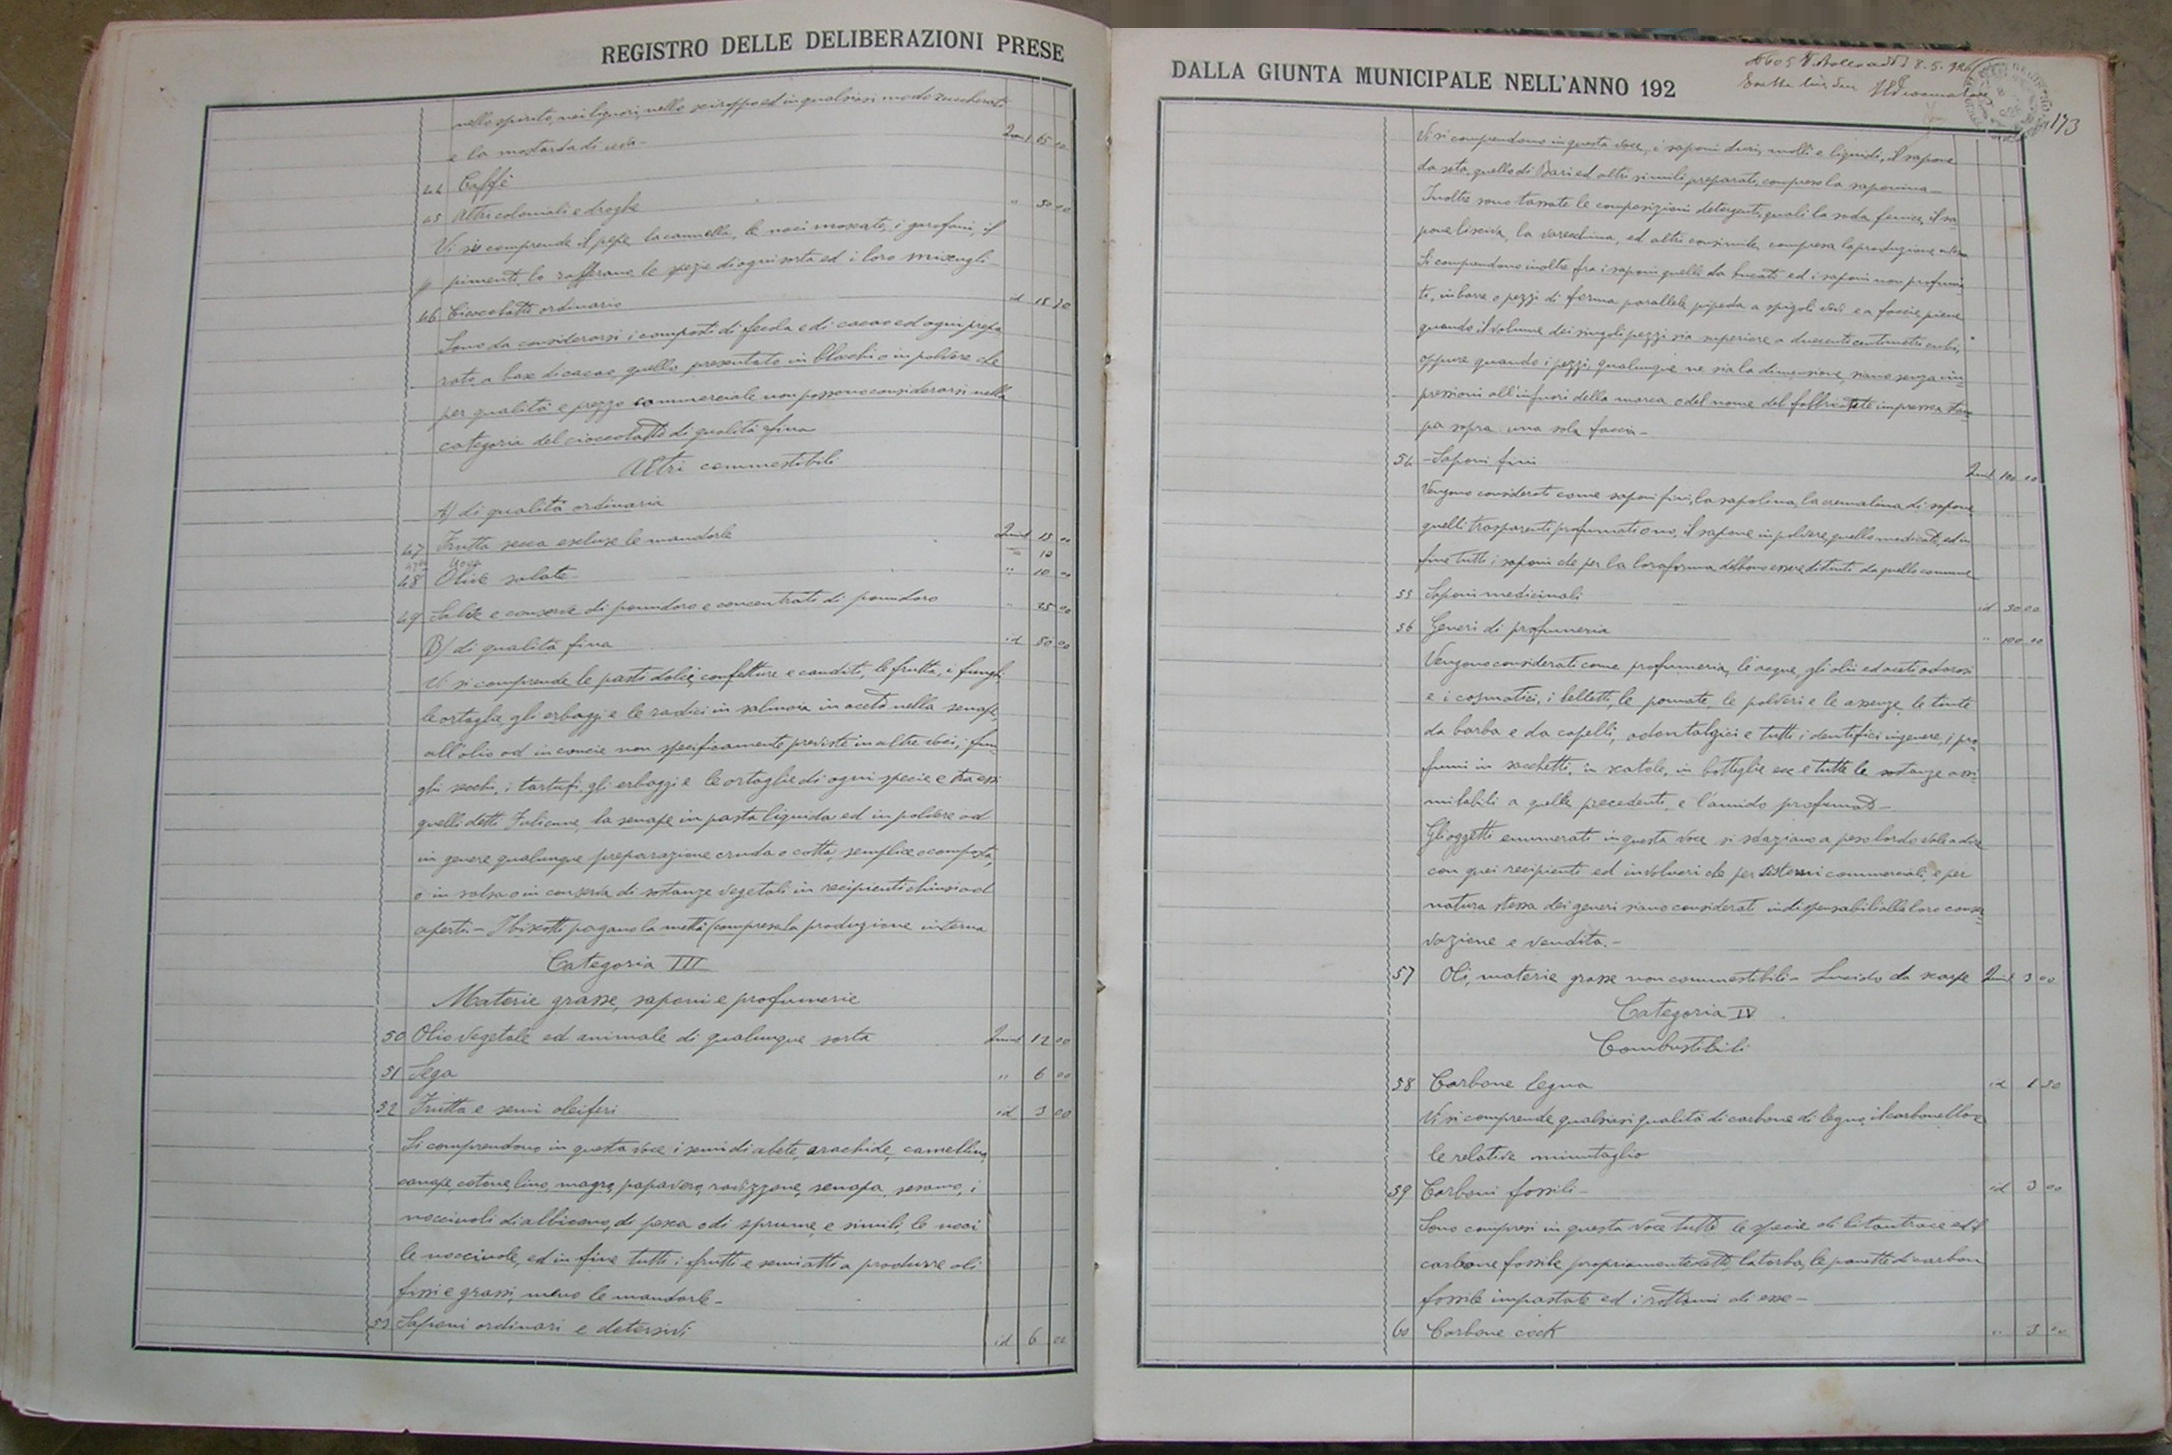 REGISTRO DELLE DELIBERAZIONI PRESE
nello spirito, nei liquori, nello sciroppo ed in qualsiasi modo zuccherati
e la mostarda di uva - Quint 65 00
44 Caffè
45 Altri coloniali e droghe " 50 00
Vi si comprende il pepe, la cannella, le noci moscate, i garofani, il
pimento lo zafferano, le spezie di ogni sorta ed i loro miscugli -
46 Cioccolatto ordinario id 18
Sono da considerarsi i composti di fecola e di cacao ed ogni prepa
rato a base di cacao, quello presentato in blocchi o in polvere che
per qualità e prezzo commerciale non possono considerarsi nella
categoria del cioccolatto di qualità fina
Altri commestibili
A) di qualità ordinaria
47 Frutta secca escluse le mandorle Quint 15 00
Uova 10
48 Olive salate " 10 00
49 Salse e conserve di pomidoro e concentrati di pomidoro " 25 00
B) di qualità fina id 50 00
Vi si comprende le paste dolci, confetture e canditi, le frutta, i funghi,
le ortaglie, gli erbaggi e le radici in salmoia in aceto nella senape,
all'olio od in concie non specificamente previste in altre voci, i fun
ghi secchi, i tartufi, gli erbaggi e le ortaglie di ogni specie e tra essi
quelli detti Julienne, la senape in pasta liquida ed in polvere od
in genere qualunque preparazione cruda o cotta, semplice o composta,
o in salsa o in conserva di sostanze vegetali in recipienti chiusi od
aperti - I biscotti pagano la metà (compresa la produzione interna
Categoria III
Materie grasse, saponi e profumerie
50 Olio vegetale ed animale di qualunque sorta Quint 12 00
51 Sego " 6 00
52 Frutta e semi oleiferi id 3 00
Si comprendono in questa voce i semi di abete, arachide, camellina,
canape, cotone, lino, magro, papavero, ravizzone, senapa, sesamo, i
nocciuoli di albicocco, di pesca o di sprugne, e simili, le noci
le nocciuole, ed in fine tutti i frutti e semi atti a produrre oli
fissi e grassi, meno le mandorle -
53 Saponi ordinari e detersivi id 6 00
DALLA GIUNTA MUNICIPALE NELL'ANNO 192
8.5.926
173
Vi si comprendono in questa voce, i saponi duri, molli e liquidi, il sapone
da seta, quello di Bari ed altri simili preparati, compreso la saponina -
Inoltre sono tassate le composizioni detergenti quali la soda fenice, il sa
pone lisciva, la varecchina, ed altri consimili, compresa la produzione interna
Si comprendono inoltre fra i saponi quelli da bucato ed i saponi non profuma
ti, in barre o pezzi di forma parallele pipeda a spigoli vivi e a faccie piene
quando il volume dei singoli pezzi sia superiore a duecento centimetri cubi,
oppure quando i pezzi, qualunque ne sia la dimensione, siano senza im
pressioni all'infuori della marca o del nome del fabbricante impressa stam
pa sopra una sola faccia -
54 - Saponi fini Quint 100 00
Vengono considerati come saponi fini, la sapolina, la cremalina di sapone
quelli trasparenti profumati o no, il sapone in polvere, quello medicato, ed in
fine tutti i saponi che per la loro forma debbono essere distinti da quello comune
55 Saponi medicinali id 50 00
56 Generi di profumeria " 100 00
Vengono considerati come profumeria, le acque, gli olii ed aceti odorosi
e i cosmatici, i belletti, le pomate, le polveri e le essenze, le tinte
da barba e da capelli, odontalgici e tutti i dentifici in genere, i pro
fumi in sacchetti, in scatole, in bottiglie ecc e tutte le sostanze assi
milabili a quelle precedenti, e l'amido profumato -
Gli oggetti enumerati in questa voce si sdaziano a peso lordo vale a dire
con quei recipienti ed involucri che per sistemi commerciali, e per
natura stessa dei generi siano considerati indispensabili alla loro conser
vazione e vendita. -
57 Oli, materie grasse non commestibili - Lucido da scarpe Quint 3 00
Categoria IV
Combustibili
58 Carbone legna id 1 50
Vi si comprende qualsiasi qualità di carbone di legno, il carbonello e
le relative minutaglie
59 Carboni fossili - id 3 00
Sono compresi in questa voce tutte le specie di litantrace ed il
carbone fossile propriamente detto, la torba, le panette di carbon
fossile impastate ed i rottami di esse -
60 Carbone cock " 3 00